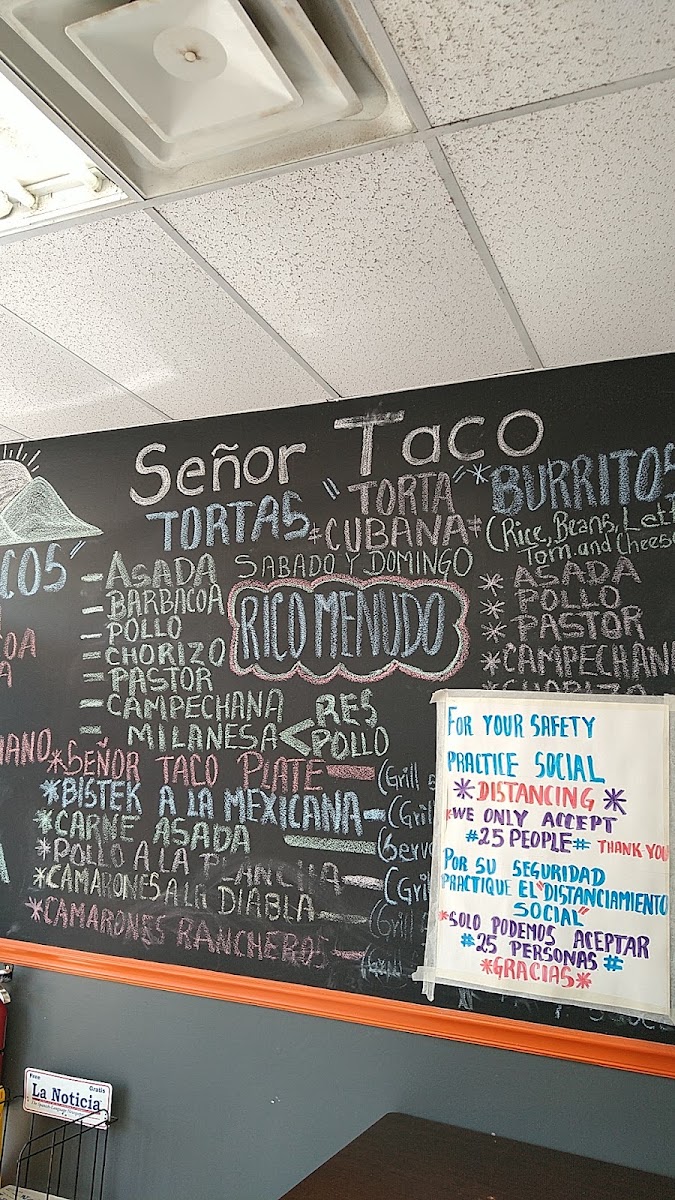 Señor Taco
TORTAS
"TORTA"
*CUBANA*
SABADO Y DOMINGO
RICO MENUDO
- ASADA
- BARBACOA
- POLLO
- CHORIZO
- PASTOR
- CAMPECHANA
= MILANESA < RES
POLLO
*BURRITOS
(Rice, Beans, Lett
Tom. and Cheese
* ASADA
* POLLO
* PASTOR
* CAMPECHANA
* CHORIZO
COS"
OA
A
IANO
*SEÑOR TACO PLATE — (Grill
*BISTEK A LA MEXICANA — (Gril
*CARNE ASADA — (Serv
*POLLO A LA PLANCHA — (Gri
*CAMARONES A LA DIABLA — (Grill
*CAMARONES RANCHEROS — (Grill
FOR YOUR SAFETY
PRACTICE SOCIAL
*DISTANCING*
*WE ONLY ACCEPT
#25 PEOPLE# THANK YOU
POR SU SEGURIDAD
PRACTIQUE EL "DISTANCIAMIENTO
SOCIAL"
*SOLO PODEMOS ACEPTAR
#25 PERSONAS#
*GRACIAS*
Free
Gratis
La Noticia
The Spanish-Language Newspaper